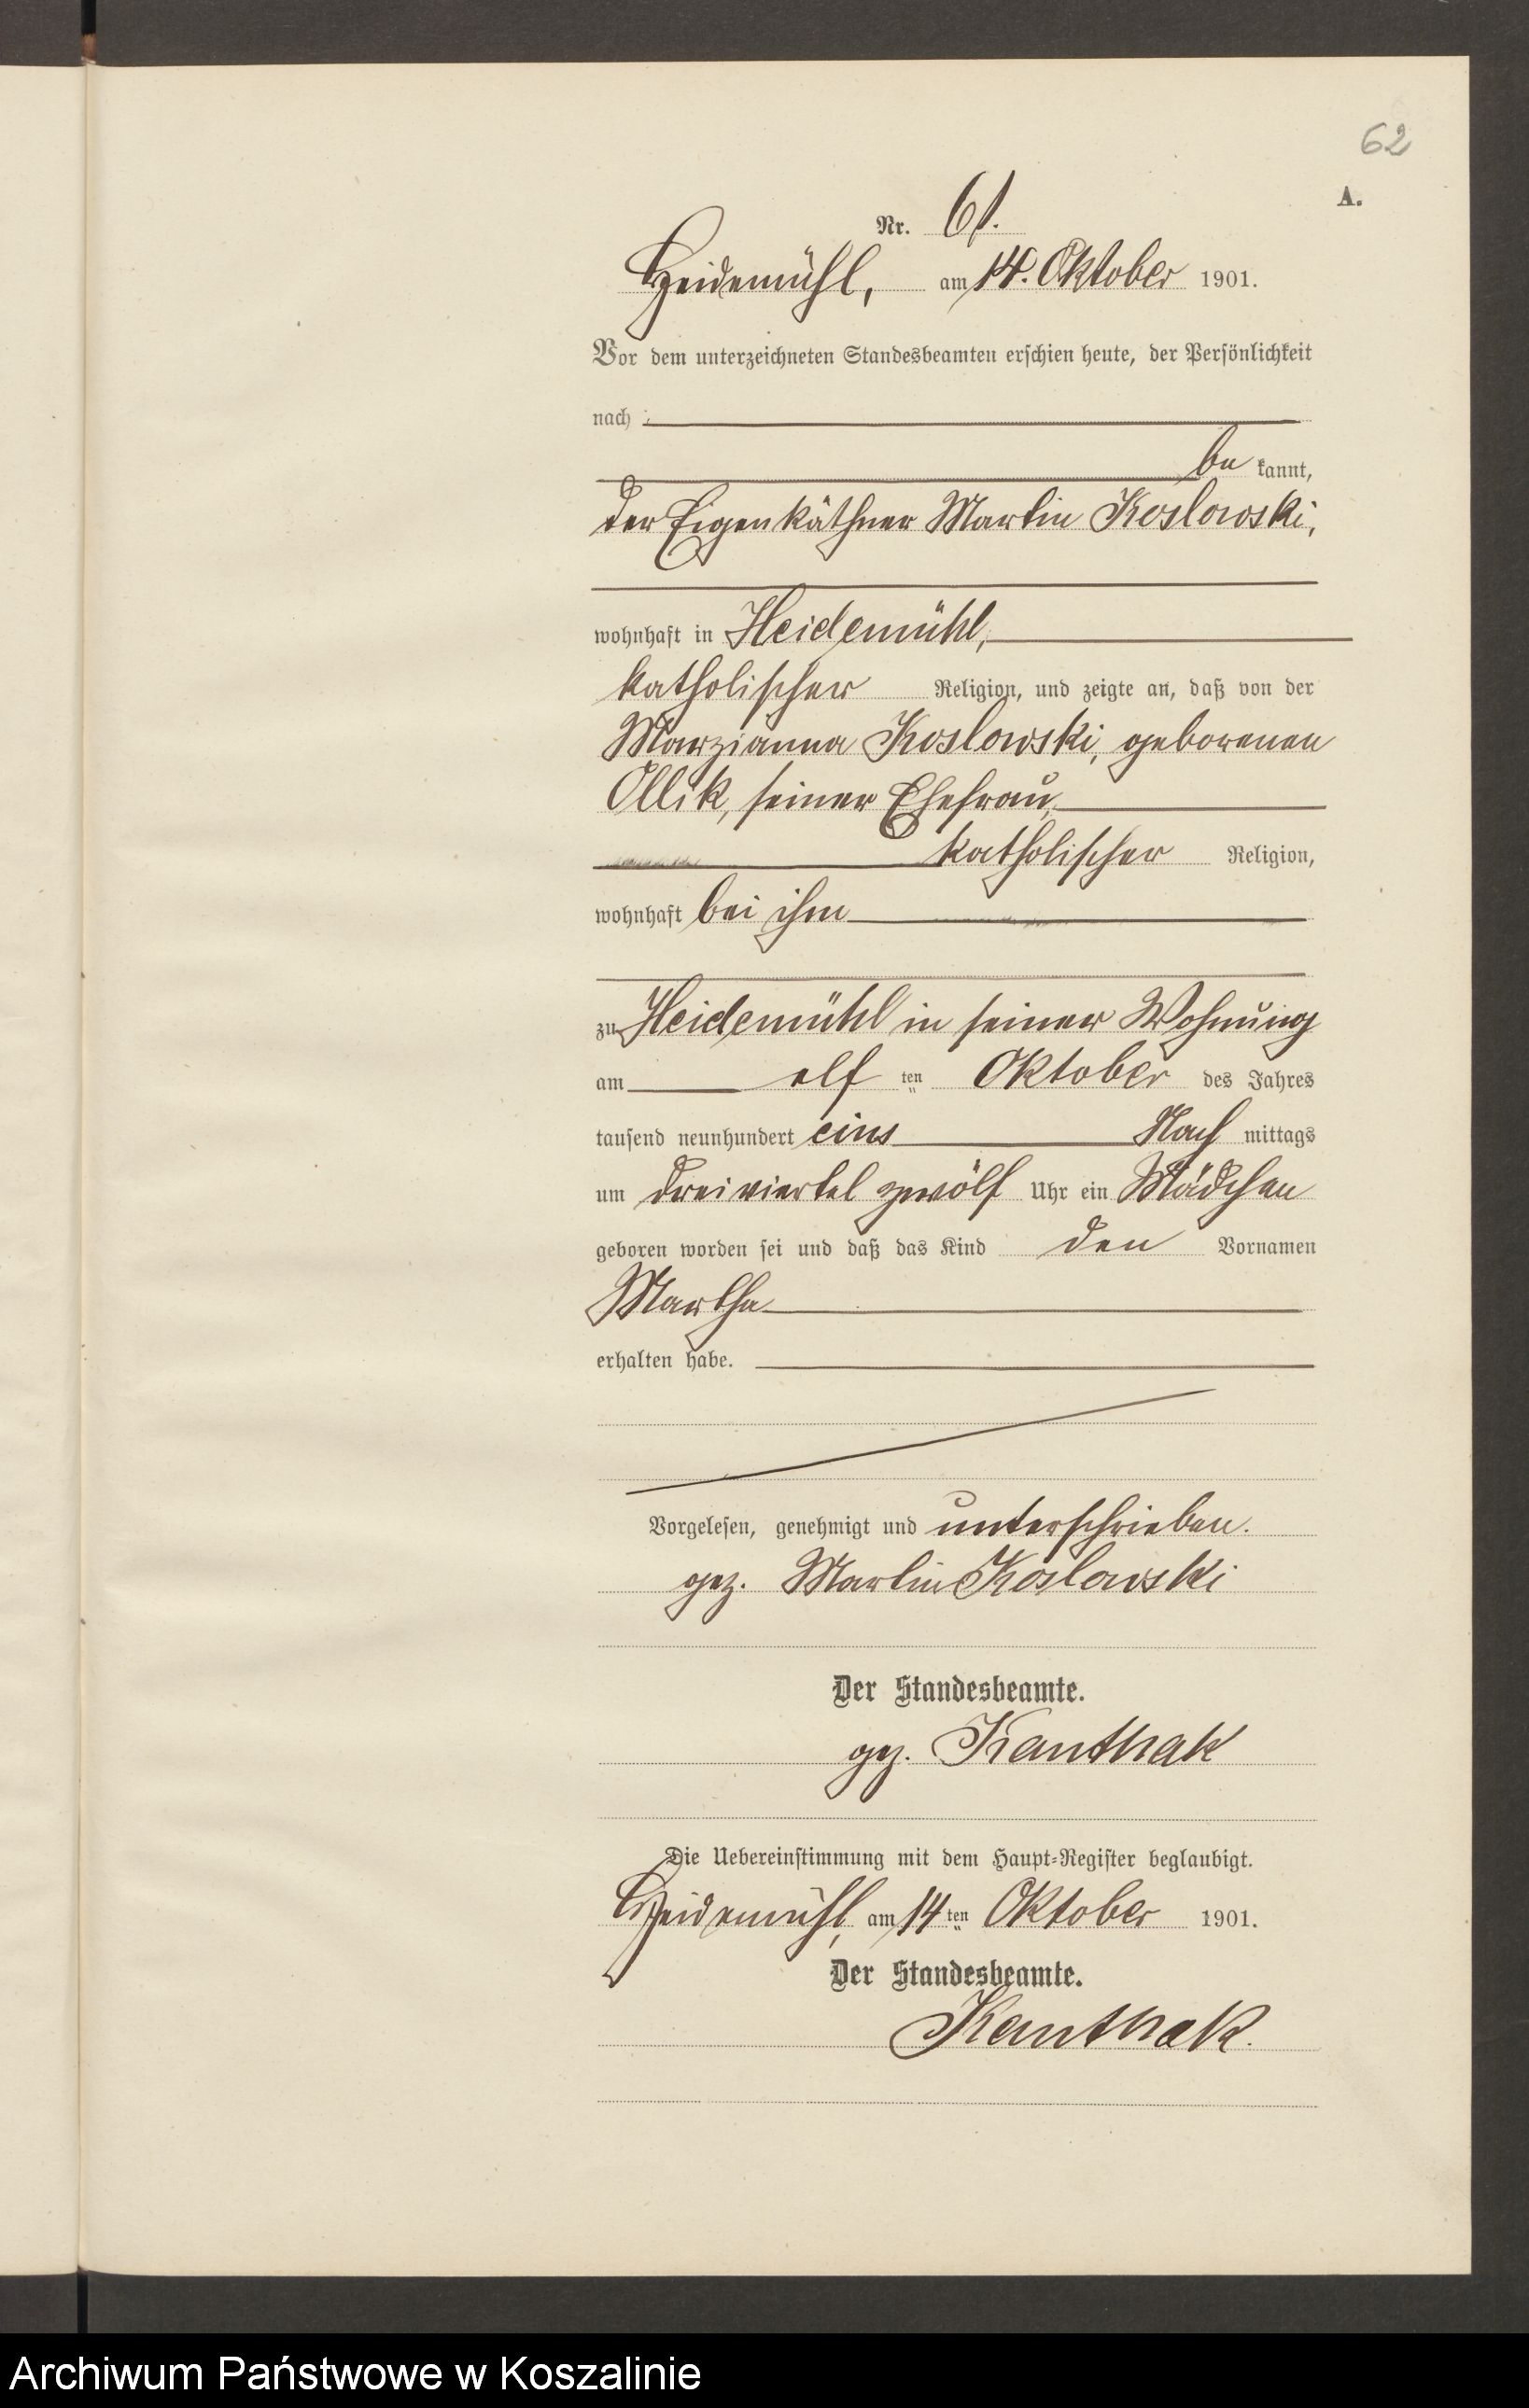 62
A.
Nr. 61.
Heidemühl, am 14. Oktober 1901.
Vor dem unterzeichneten Standesbeamten erschien heute, der Persönlichkeit
nach
be kannt,
der Eigenkäthner Martin Koslowski,
wohnhaft in Heidemühl,
katholischer Religion, und zeigte an, daß von der
Marzianna Koslowski, geborenen
Ollik, seiner Ehefrau,
katholischer Religion,
wohnhaft bei ihm
zu Heidemühl in seiner Wohnung
am elf ten Oktober des Jahres
tausend neunhundert eins Nach mittags
um dreiviertel zwölf Uhr ein Mädchen
geboren worden sei und daß das Kind den Vornamen
Martha
erhalten habe.
Vorgelesen, genehmigt und unterschrieben.
gez. Martin Koslowski
Der Standesbeamte.
gez. Kanthak
Die Uebereinstimmung mit dem Haupt=Register beglaubigt.
Heidemühl, am 14 ten Oktober 1901.
Der Standesbeamte.
Kanthak.
Archiwum Państwowe w Koszalinie